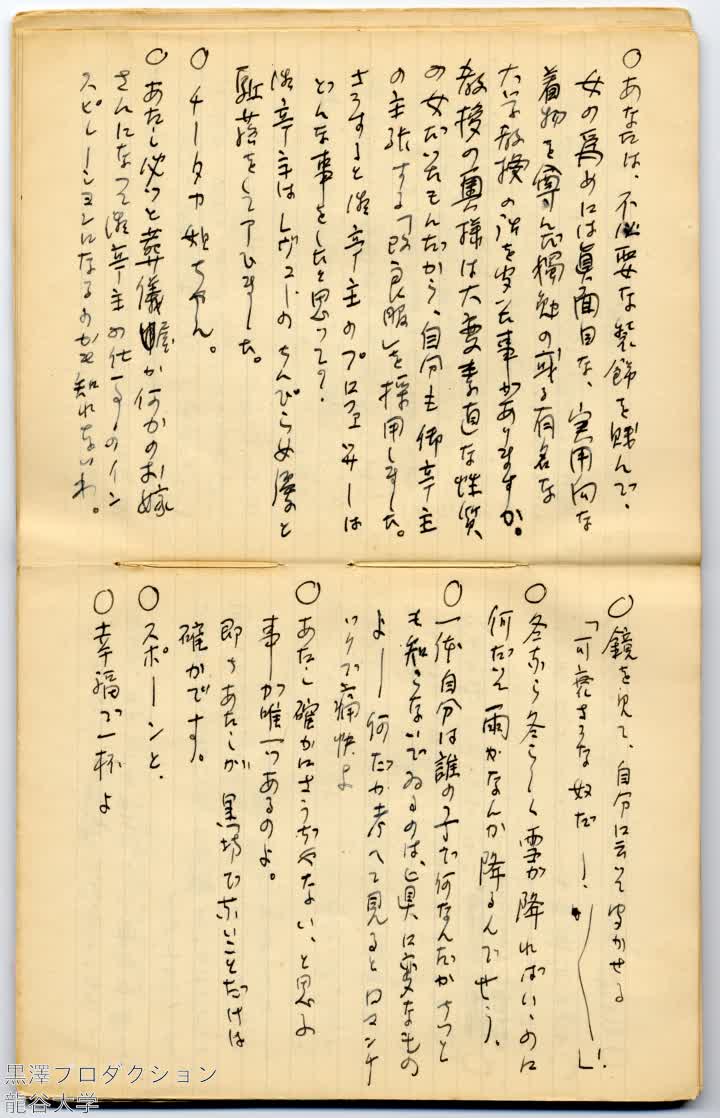 ○あなたは、不必要な装飾を賤んで、
女の為めには眞面目な、実用向な
着物を尊ぶ獨勉の或る有名な
大学教授の話を聞いた事がありますか。
教授の奥様は大変素直な性質
の女だったもんだから、自分も御亭主
の主張する「改良服」を採用しました。
さうすると御亭主のプロフェッサーは
どんな事をしたと思って？
御亭主はレヴューのちんぴら女優と
駈落をして了ひました。
○チータカ姐ちゃん。
○あたし必っと葬儀屋か何かのお嫁
さんになって御亭主の仕事のイン
スピレーションになるのかも知れないわ。
○鏡を見て、自分に云って聞かせる
「可哀さうな奴だー。」
○冬なら冬らしく雪が降ればいゝのに
何だって雨がなんか降るんでせう。
○一体自分は誰の子で何なんだかちっと
も知らないでゐるのは、眞に変なもの
よー何だか考へて見るとロマンチ
ックで痛快よ
○あたし確かにさうぢゃない、と思ふ
事が唯一つあるのよ。
即ちあたしが黒坊で無いことだけは
確かです。
○スポーンと、
○幸福で一杯よ
黒澤プロダクション
龍谷大学